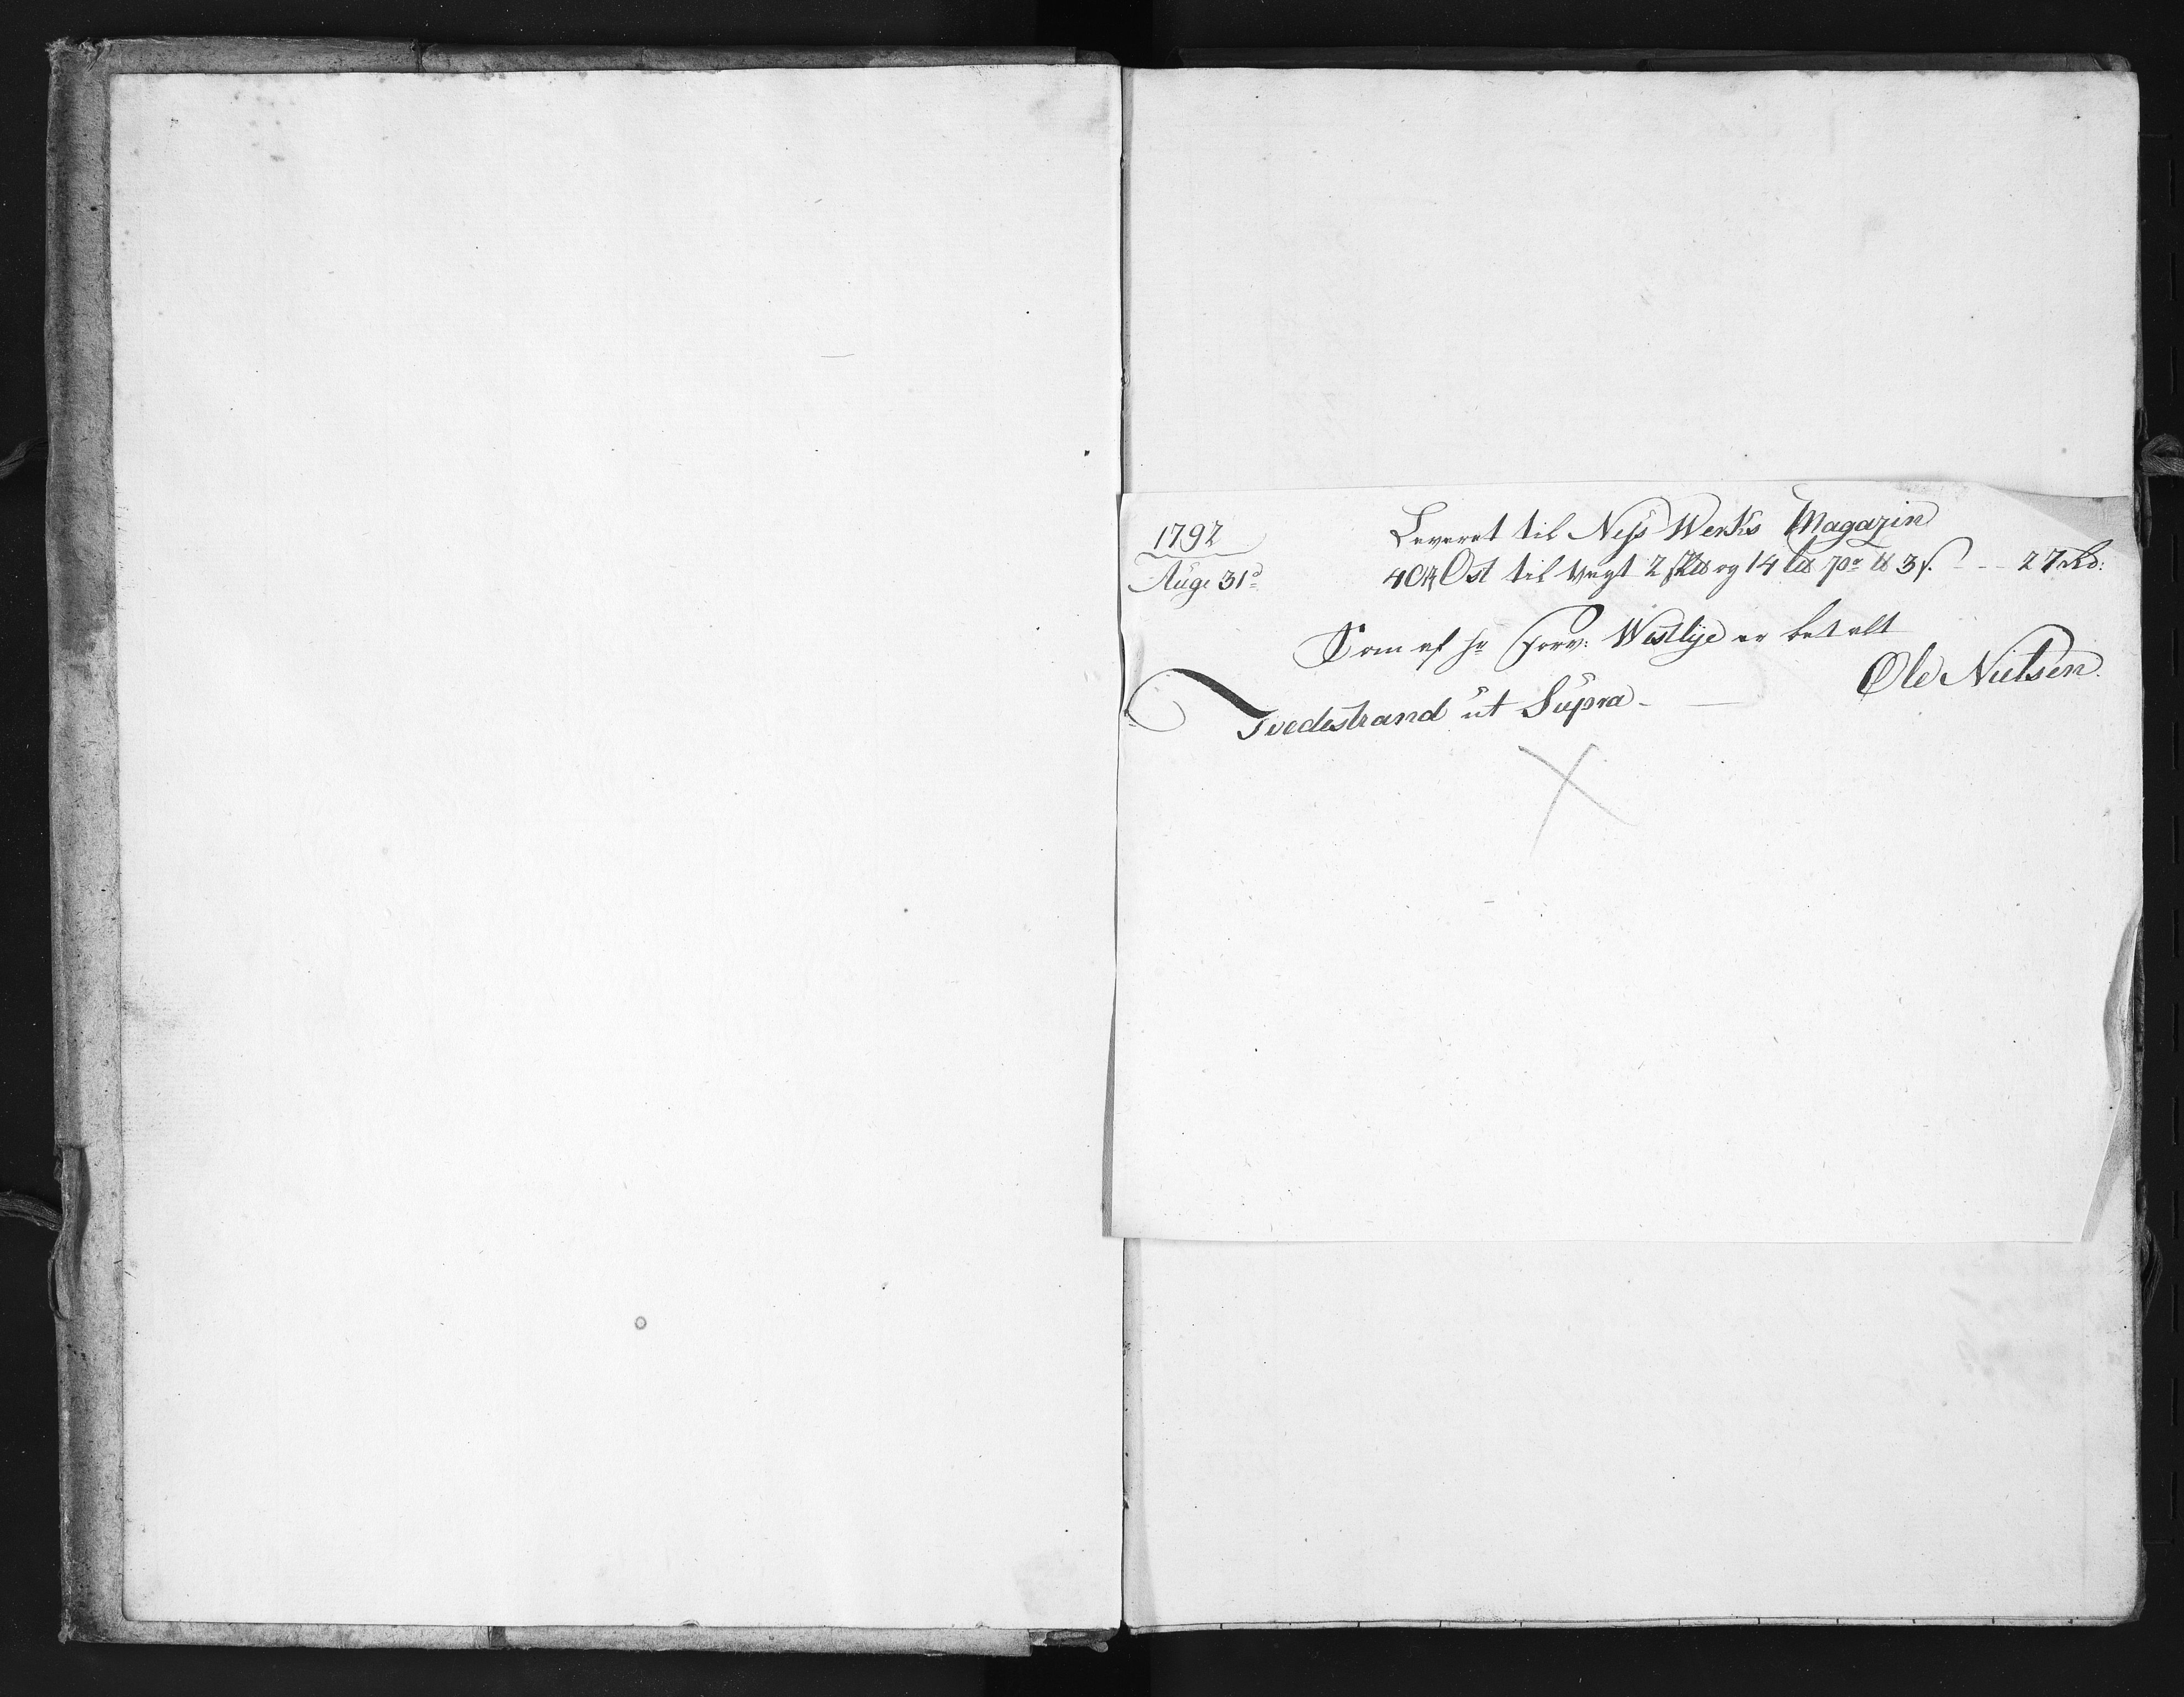 1792 Leveret til Nes Werks Magazin
Aug: 31d 40 Ost til Vegt 2 og 14 pr 3 s. - - 27 Rd:
Som af Hr Forv: Westlye er betalt
Ole Nielsen.
Tvedestrand ut Supra -